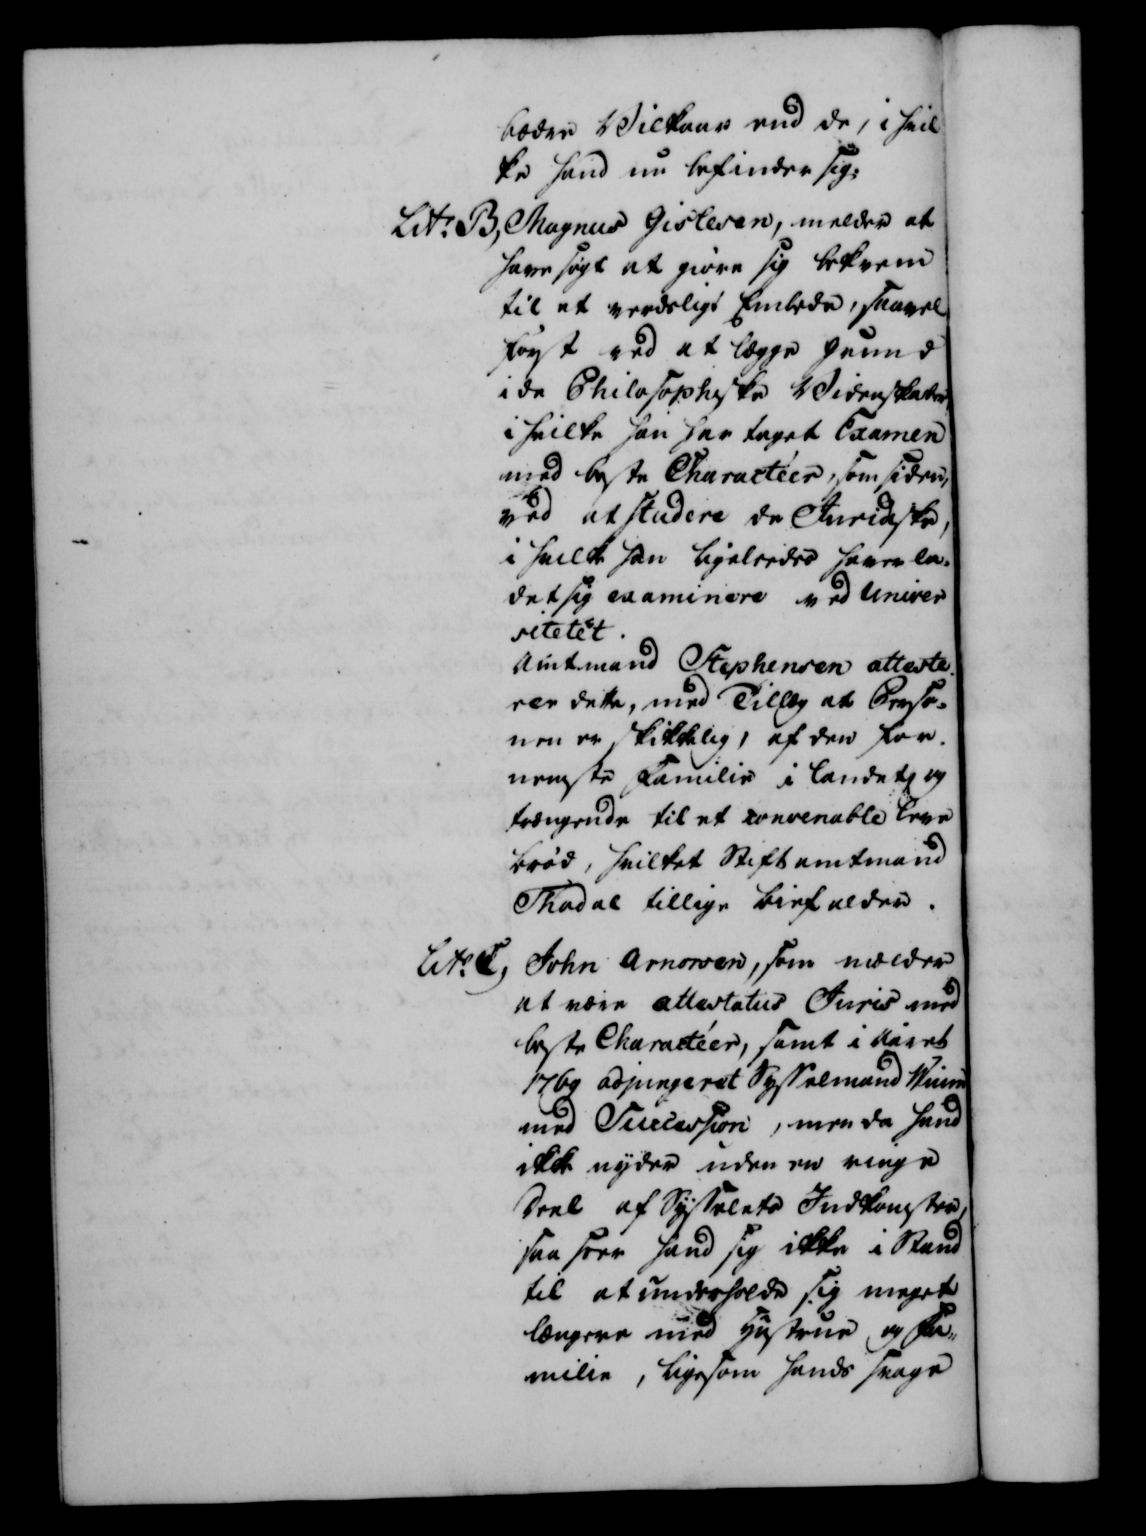 bædre Wilkaar end de, i hvil
ke hand nu befinder sig:
Litr. B, Magnus Gislesen, melder at
have søgt at giøre sig bekvem
til et verdsligt Embede, saavel
først ved at lægge grund
i de Philosophiske Widenskaber,
i hvilke han har taget Examen
med beste Charactéer, som siden,
ved at studere de Juridiske,
i hvilke han ligeledes haver la-
det sig examinere ved Univer
sitetet.
Amtmand Stephensen atteste
rer dette, med Tillæg at Perso-
nen er skikkelig, af den for-
nemste Familie i Landet, og
trængende til et convenable Leve
brød, hvilket Stiftamtmand
Thodal tillige bifalder.
Litr. C, John Arnorsen, som melder
at være attestatus Juris med
beste Charactéer, samt i Aaret
1769 adjungeret Sysselmand Wium
med Succession, men da hand
ikke nyder uden en ringe
Deel af Sysselets Indkomster,
saa seer hand sig ikke i Stand
til at underholde sig meget
længere med Hustrue og Fa-
milie, ligesom hands svage